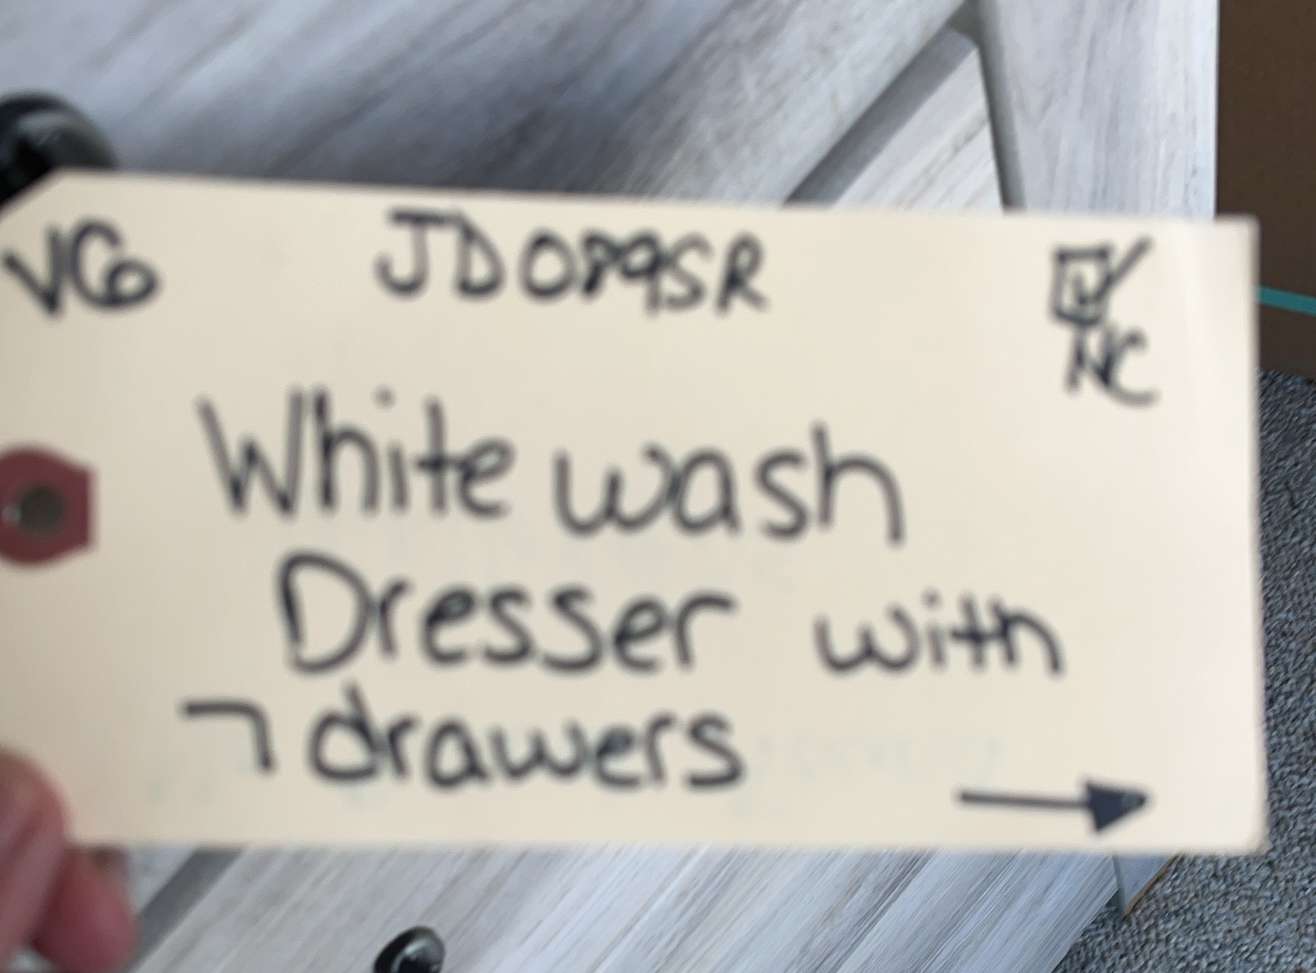 VG JD089SR
NC
White wash
Dresser with
7 drawers